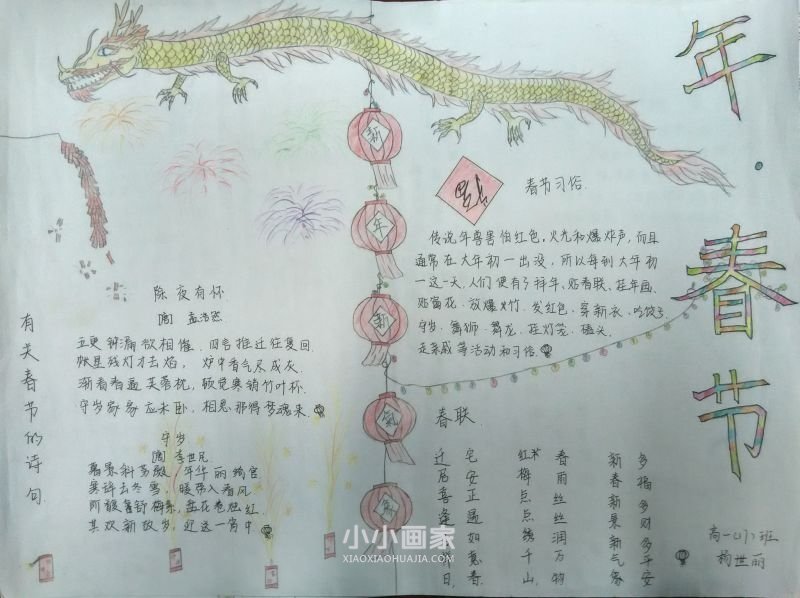 年·春节
新
年
新
氣
有关春节的诗句
除夜有怀
孟浩然
五更钟漏欲相催,四气推迁往复回.
帐里残灯才去焰,炉中香气尽成灰.
渐看春逼芙蓉枕,顿觉寒销竹叶杯.
守岁家家应未卧,相思那得梦魂来.
守岁
李世民
寒辞去冬雪,暖带入春风
阶馥舒梅素,盘花卷烛红.
共欢新故岁,迎送一宵中.
春节习俗.
传说年兽害怕红色,火光和爆炸声,而且
通常在大年初一出没,所以每到大年初
一这一天,人们便有了拜年、贴春联、挂年画、
贴窗花、放爆竹、发红包、穿新衣、吃饺子、
守岁、舞狮、舞龙、挂灯笼、磕头、
走亲戚等活动和习俗.
春联
迁居喜逢如
宅安正遇如意春
红梅点点绣千山
春雨丝丝润万物
新春新景新气象
多福多财多平安
高一(1)班
杨世丽
小小画家
XIAOXIAOHUAJIA.COM